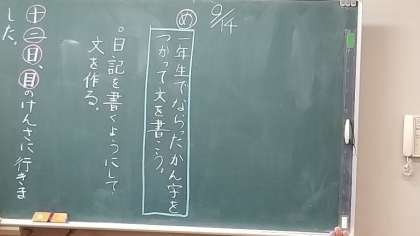 9/14
め
一年生でならったかん字を
つかって文を書こう。
。日記を書くようにして
文を作る。
十二日、目のけんさに行きま
した。